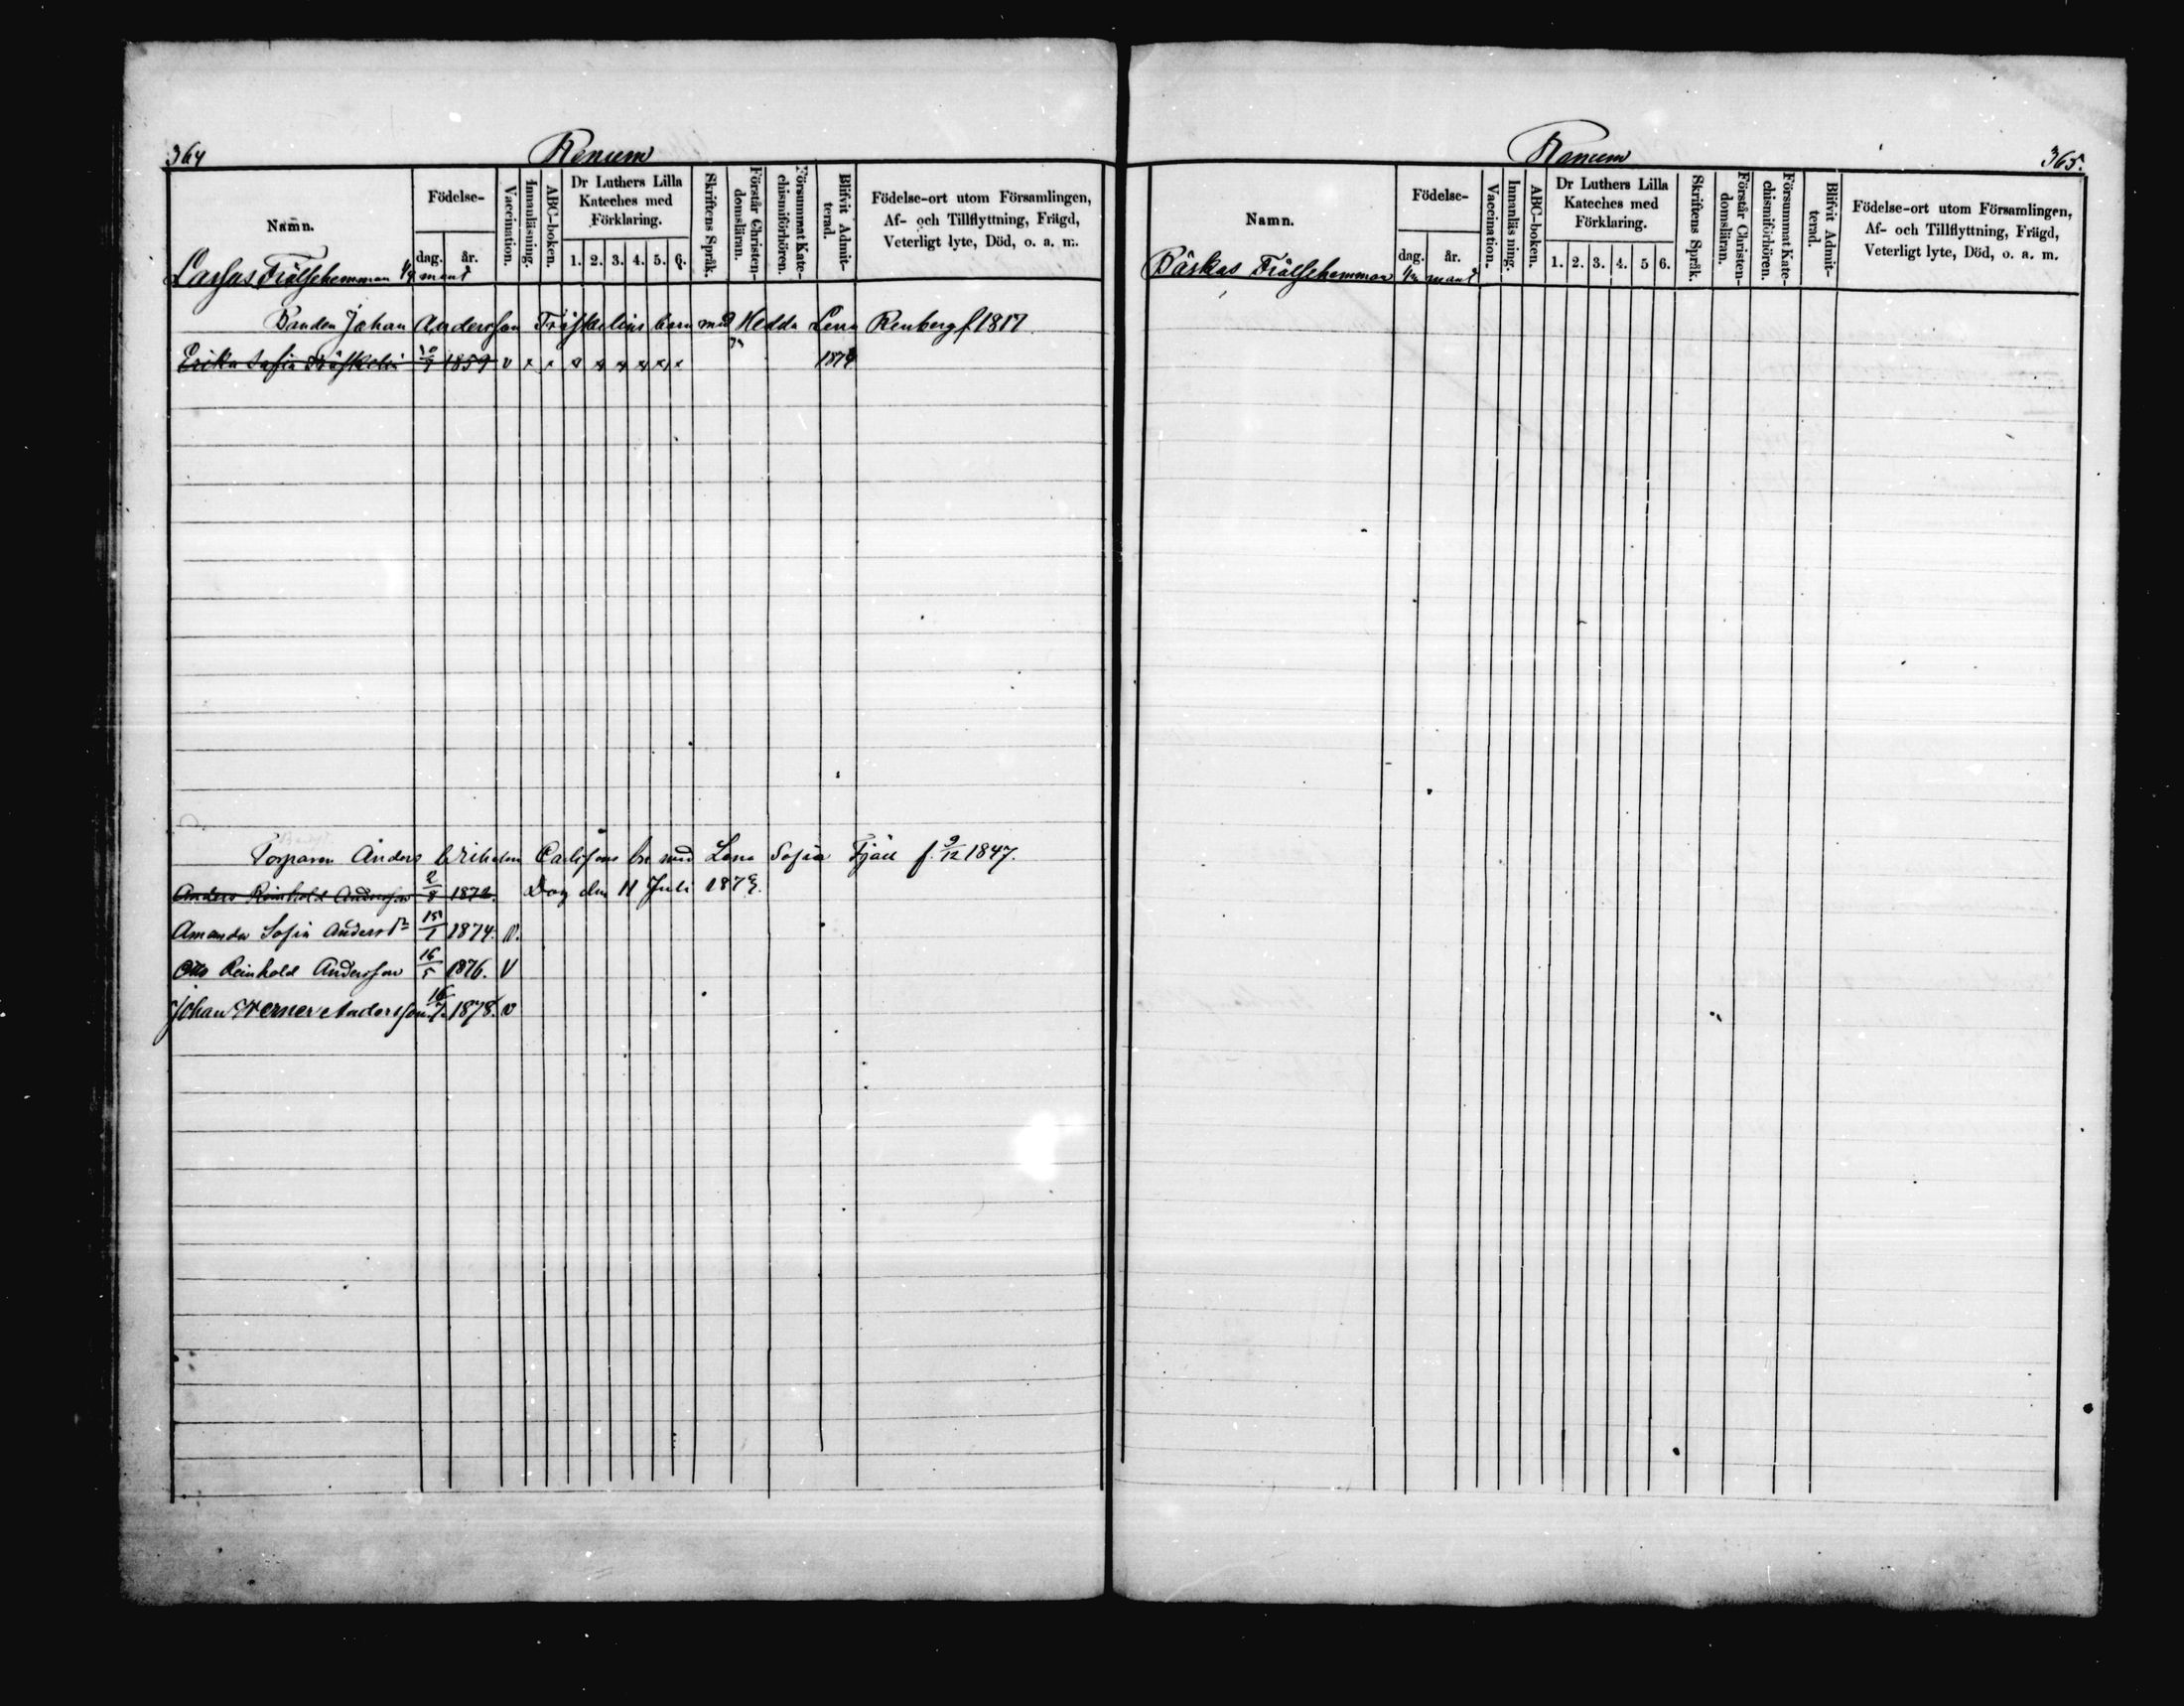 364
Renum
Namn.
Födelse-
dag.
år.
Vaccination.
Innanläsning.
ABC-boken.
Dr Luthers Lilla
Kateches med
Förklaring.
1. 2. 3. 4. 5. 6.
Skriftens Språk.
Förstår Christen-
domsläran.
Försummat Kate-
chismiförhören.
Blifvit Admit-
terad.
Födelse-ort utom Församlingen,
Af- och Tillflyttning, Frägd,
Veterligt lyte, Död, o. a. m.
Lassas Frälsehemman 1/4 mant
Bonden Johan Andersson Träskelins barn med Hedda Lena Renberg f 1817.
Erika Sofia Träskelin 1859 v x x x x x x x x 1874
Torparen Anders Wilhelm Carlssons br med Lena Sofia Fjäll f. 9/12 1847.
Anders Reinhold Andersson 2/8 1872. Dog den 11 Juli 187
Amanda Sofia Andersd 15/1 1874. v.
Otto Reinhold Andersson 16/5 1876. V
Johan Werner Andersson 16/7. 1878. v
Ranum
365.
Namn.
Födelse-
dag.
år.
Vaccination.
Innanläsning.
ABC-boken.
Dr Luthers Lilla
Kateches med
Förklaring.
1. 2. 3. 4. 5 6.
Skriftens Språk.
Förstår Christen-
domsläran.
Försummat Kate-
chismiförhören.
Blifvit Admit-
terad.
Födelse-ort utom Församlingen,
Af- och Tillflyttning, Frägd,
Veterligt lyte, Död, o. a. m.
Bäskas Frälsehemman mant